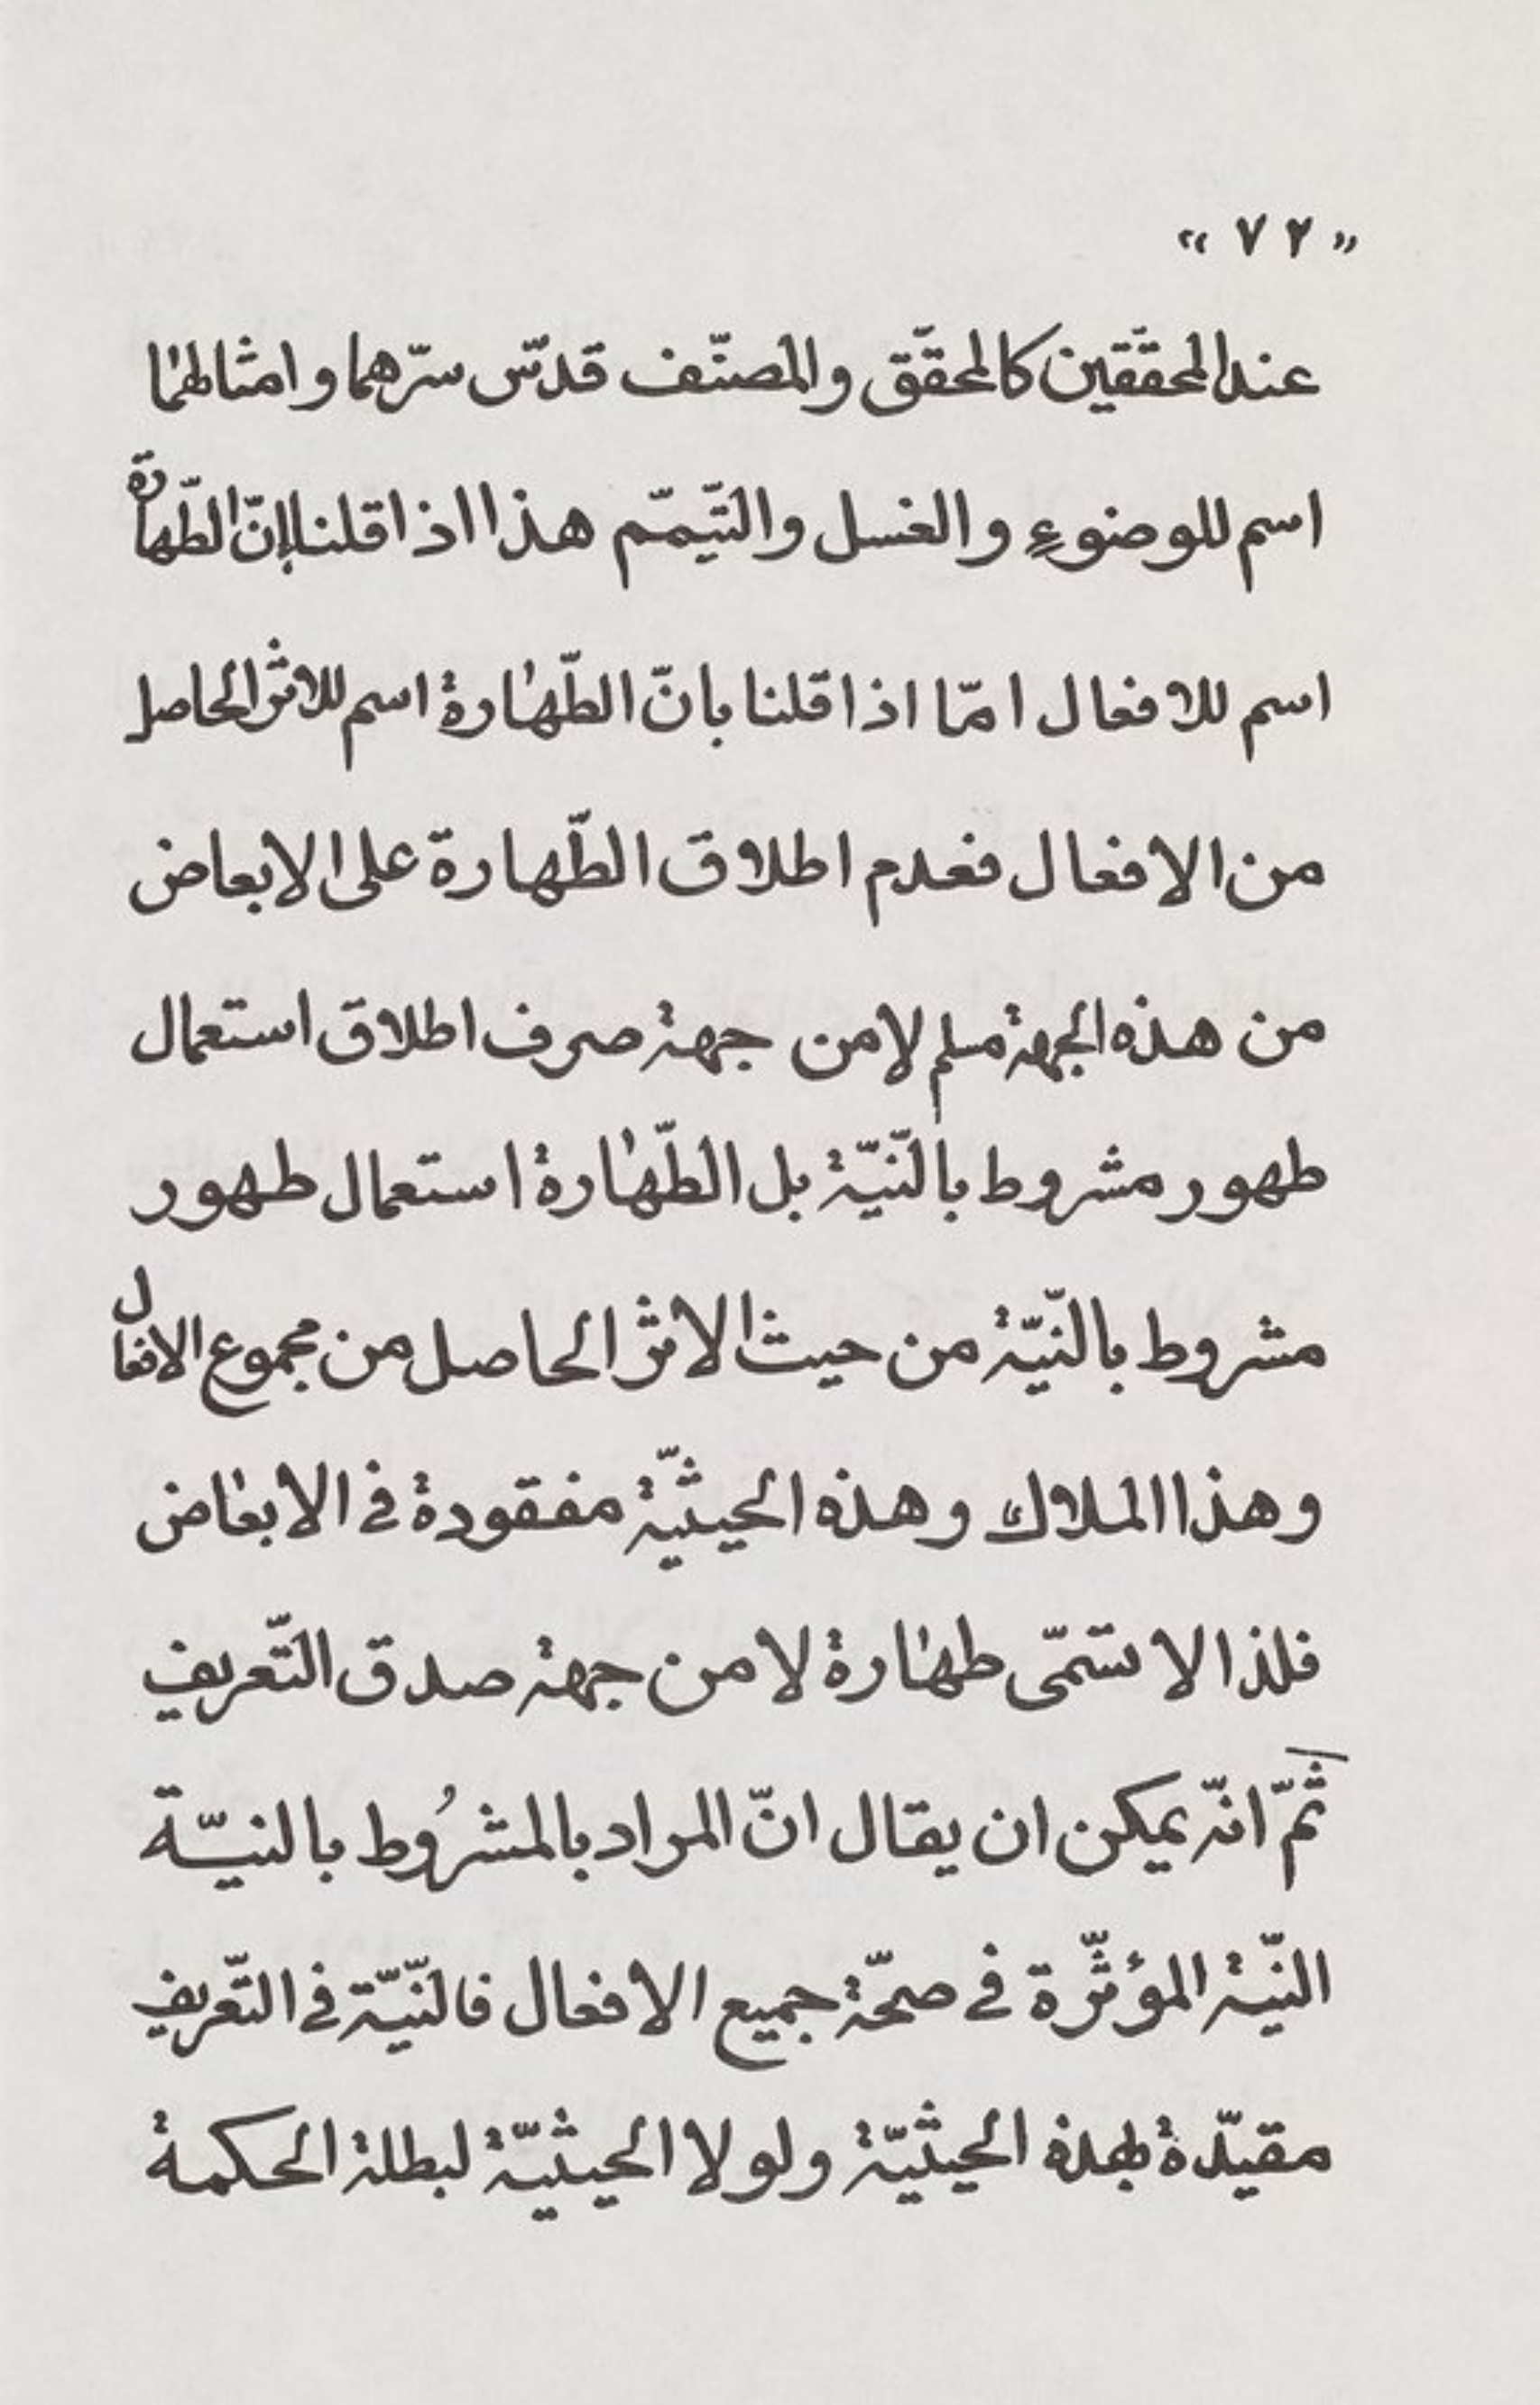 « ٧٢ »
عند المحقّقین کالمحقّق والمصنّف قدّس سرّهما وامثالهما
اسم للوضوءِ والغسل والتّیمّم هذا اذا قلنا بانّ الطّهارة
اسم للافعال امّا اذا قلنا بانّ الطّهارة اسم للاثر الحاصل
من الافعال فعدم اطلاق الطّهارة علی الابعاض
من هذه الجهة مسلم لا من جهة صرف اطلاق استعمال
طهور مشروط بالنّیّة بل الطّهارة استعمال طهور
مشروط بالنّیّة من حیث الاثر الحاصل من مجموع الافعال
وهذا الملاك وهذه الحیثیّة مفقودة فی الابعاض
فلذا لا تسمّی طهارة لا من جهة صدق التّعریف
ثمّ انّه یمکن ان یقال انّ المراد بالمشرُوط بالنیّة
النّیّة المؤثّرة فی صحّة جمیع الافعال فالنّیّة فی التّعریف
مقیّدة بهذه الحیثیّة ولولا الحیثیّة لبطلة الحکمة